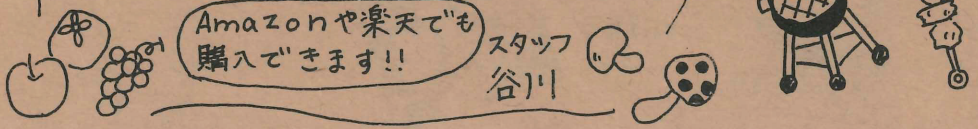 Amazonや楽天でも
購入できます!!
スタッフ
谷川